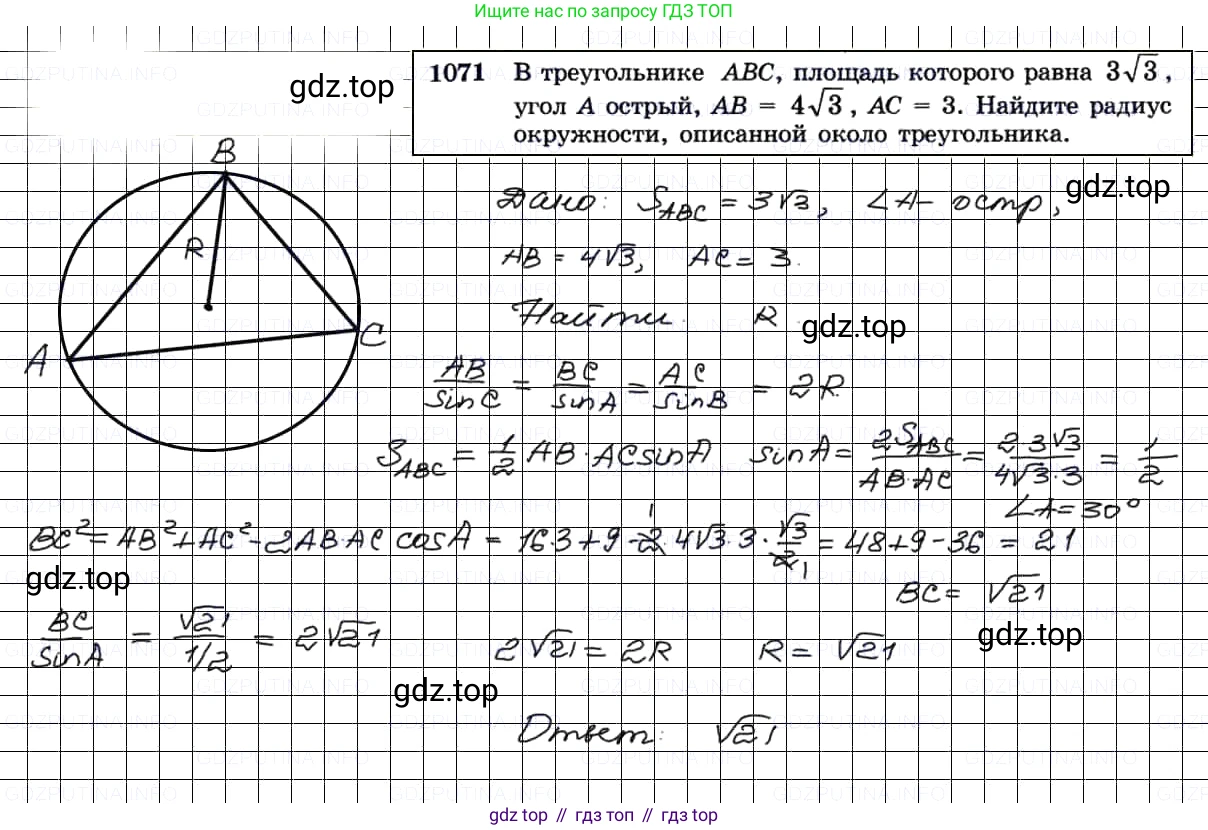 Ищите нас по запросу ГДЗ ТОП
gdz.top
1071 В треугольнике ABC, площадь которого равна 3√3,
угол A острый, AB = 4√3, AC = 3. Найдите радиус
окружности, описанной около треугольника.
B
R
A
C
Дано: S_ABC = 3√3, ∠A – остр,
gdz.top
AB = 4√3, AC = 3.
Найти: R
gdz.top
AB/sinC = BC/sinA = AC/sinB = 2R
S_ABC = 1/2 AB·AC sinA sinA = 2S_ABC/AB·AC = 2·3√3/4√3·3 = 1/2
∠A = 30°
BC² = AB² + AC² - 2AB·AC cosA = 16·3 + 9 - 2·4√3·3·√3/2 = 48 + 9 - 36 = 21
gdz.top
BC = √21
BC/sinA = √21/1/2 = 2√21 2√21 = 2R R = √21
gdz.top
gdz.top
Ответ: √21
gdz top // гдз топ // гдз top
GDZPUTINA.INFO